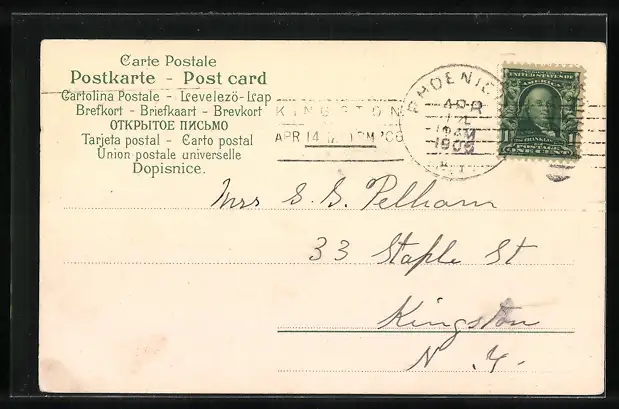 Carte Postale
Postkarte - Post card
Cartolina Postale - Levelezö-Lap
Brefkort - Briefkaart - Brevkort
ОТКРЫТОЕ ПИСЬМО
Tarjeta postal - Carto postal
Union postale universelle
Dopisnice.
KINGSTON
APR 14 PM '06
PHOENIC
APR
1906
UNITED STATES OF
AMERICA
FRANKLIN
POSTAGE
1 ONE CENT 1
Mrs S. G. Pelham
33 Staple St
Kingston
N. Y.